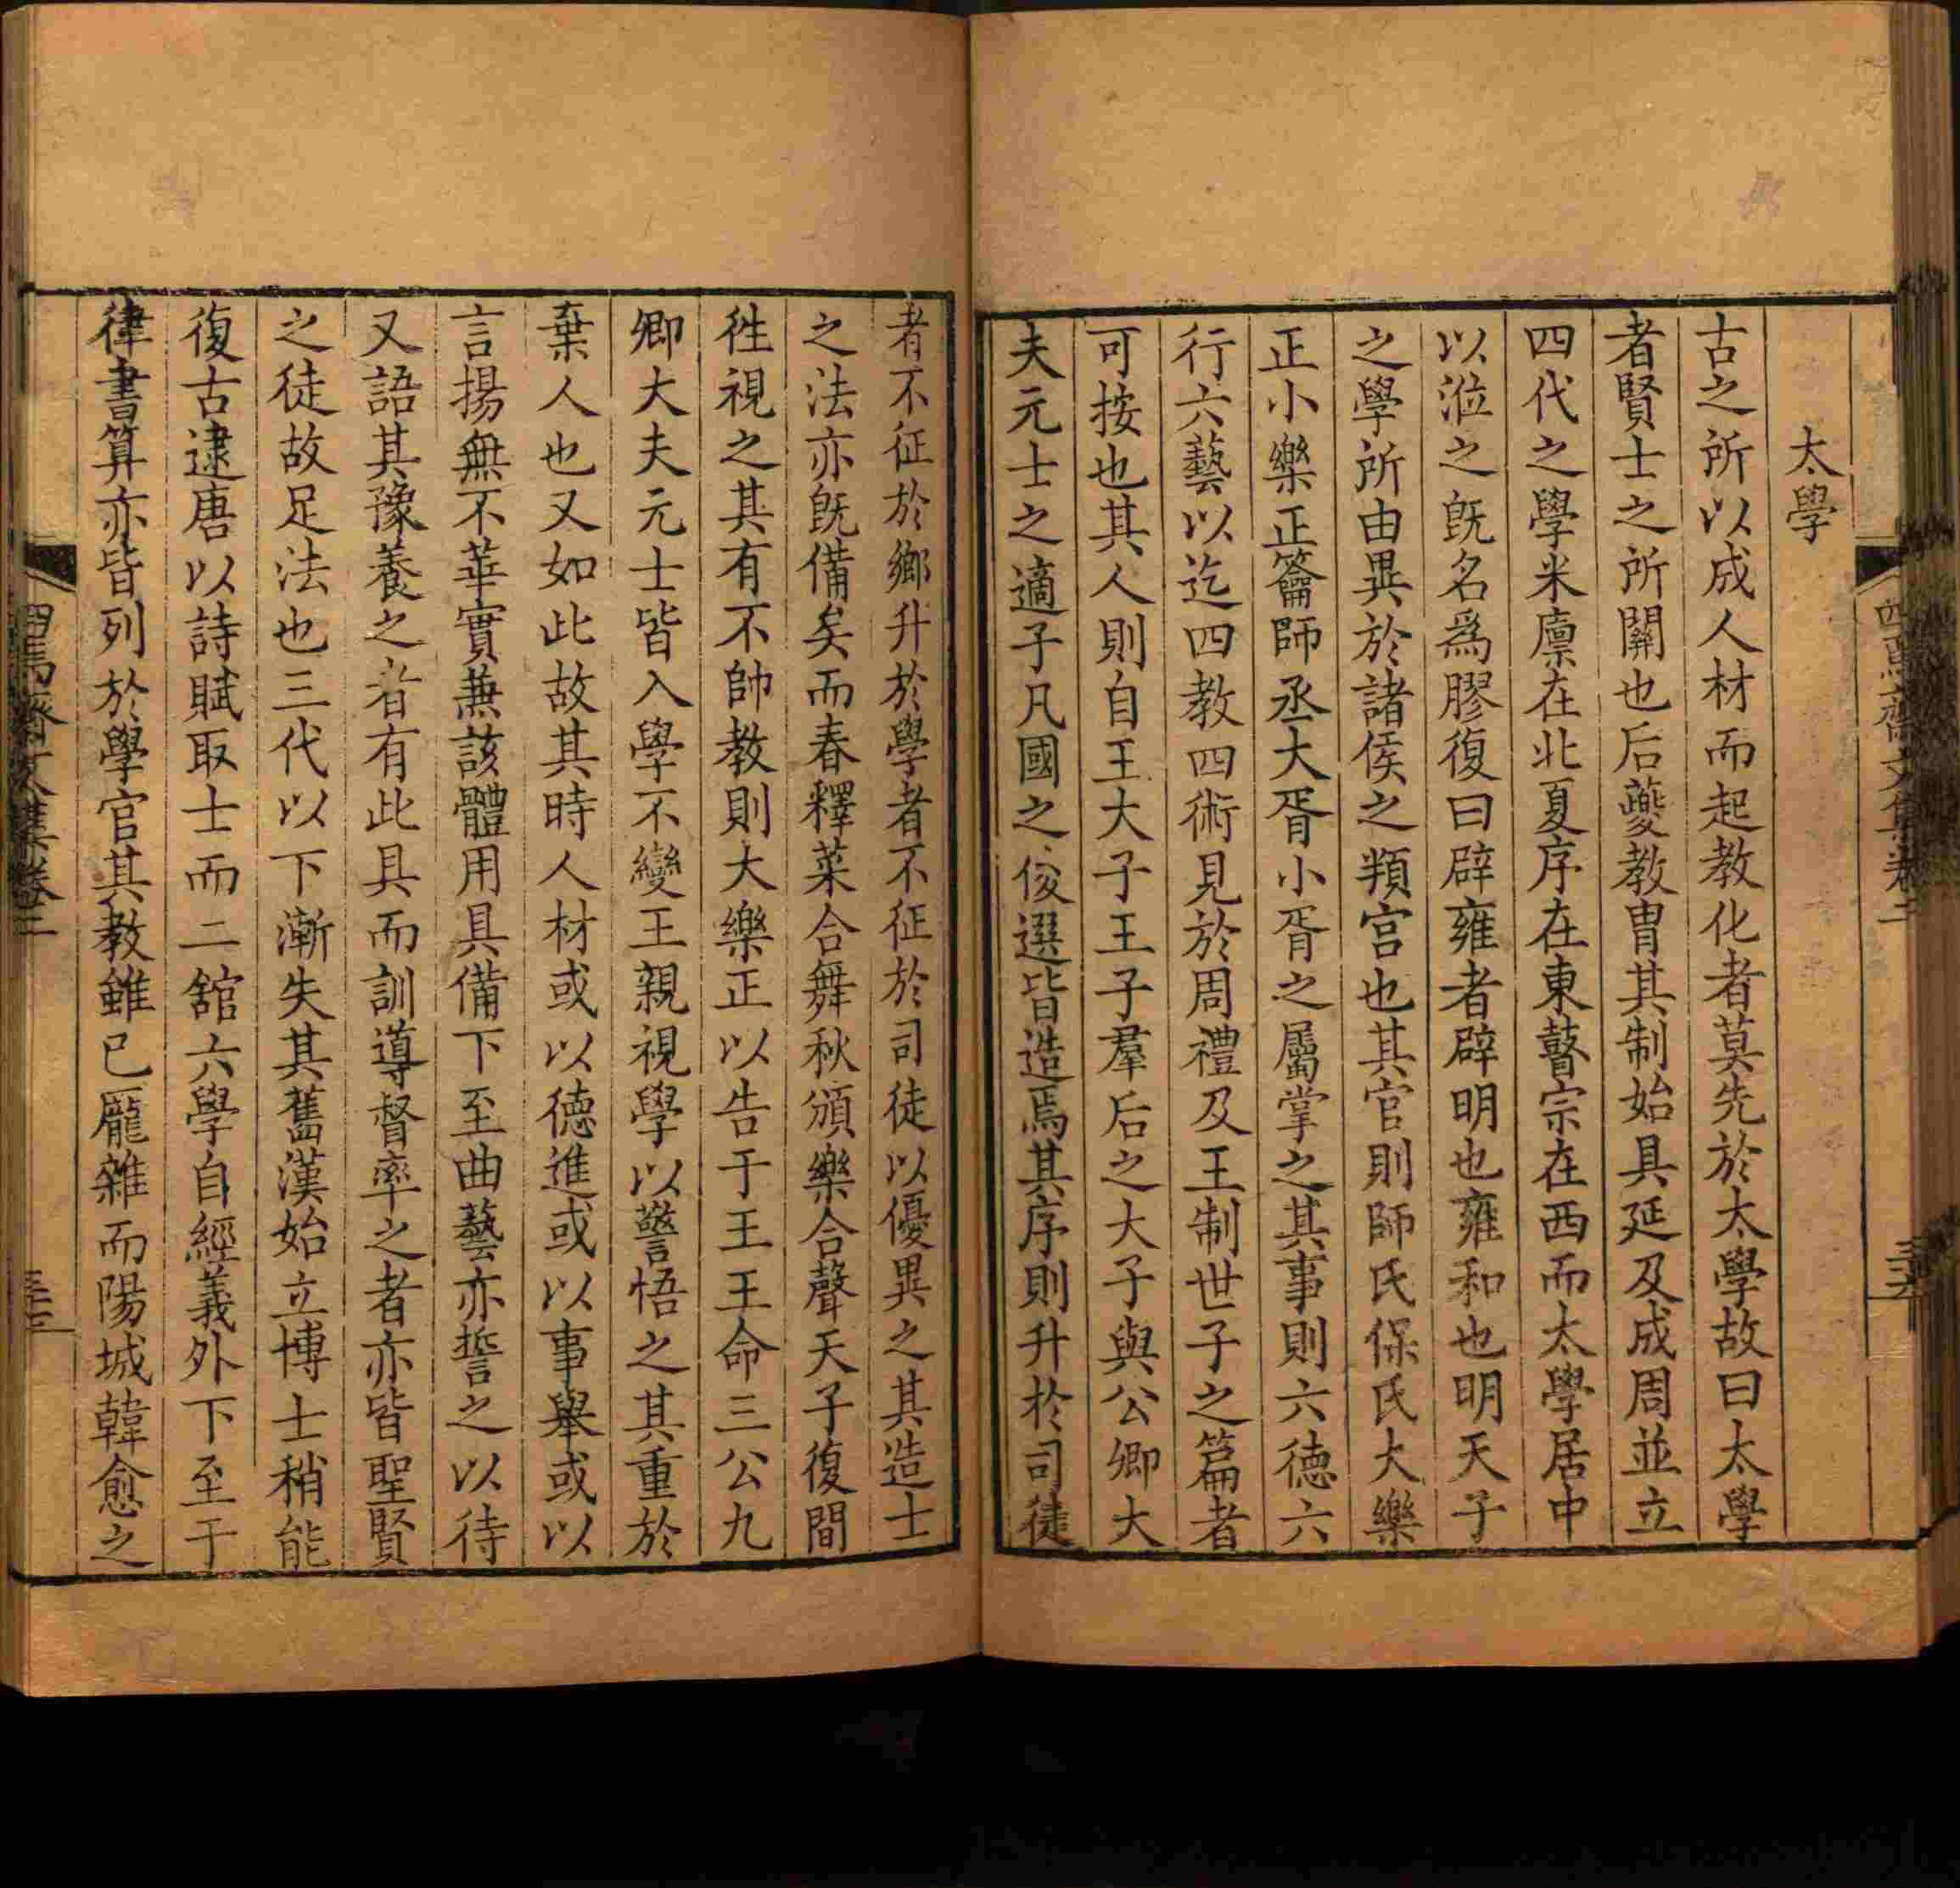 太學
古之所以成人材而起教化者莫先於太學故曰太學
者賢士之所關也后夔教胄其制始具延及成周並立
四代之學米廩在北夏序在東瞽宗在西而太學居中
以涖之旣名爲膠復曰辟雍者辟明也雍和也明天子
之學所由異於諸侯之頖宮也其官則師氏保氏大樂
正小樂正籥師丞大胥小胥之屬掌之其事則六德六
行六藝以迄四教四術見於周禮及王制世子之篇者
可按也其人則自王大子王子羣后之大子與公卿大
夫元士之適子凡國之俊選皆造焉其序則升於司徒
者不征於鄉升於學者不征於司徒以優異之其造士
之法亦旣備矣而春釋菜合舞秋頒樂合聲天子復間
徃視之其有不帥教則大樂正以告于王王命三公九
卿大夫元士皆入學不變王親視學以警悟之其重於
棄人也又如此故其時人材或以德進或以事舉或以
言揚無不華實兼該體用具備下至曲藝亦誓之以待
又語其豫養之者有此具而訓導督率之者亦皆聖賢
之徒故足法也三代以下漸失其舊漢始立博士稍能
復古逮唐以詩賦取士而二舘六學自經義外下至于
律書算亦皆列於學官其教雖已龎雜而陽城韓愈之